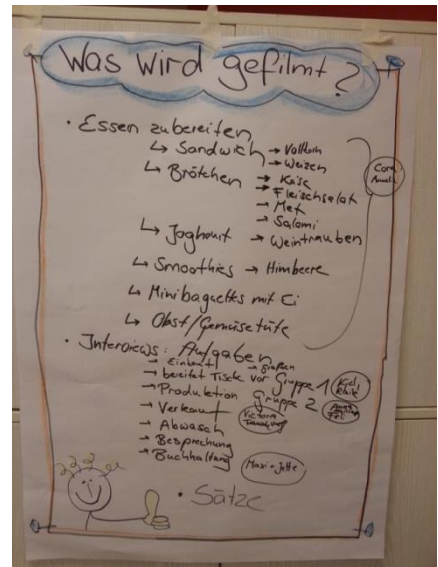 Was wird gefilmt?
· Essen zubereiten
↳ Sandwich → Vollkorn
→ Weizen
↳ Brötchen → Käse
→ Fleischselat
→ Met
→ Salami
↳ Joghourt → Weintrauben
↳ Smoothies → Himbeere
↳ Minibaguettes mit Ei
↳ Obst/Gemüsetüte
· Interviews: Aufgaben
→ Einkauf
→ bereitet Tische vor Gruppe 1
→ Produktion Gruppe 2
→ Verkauf
→ Abwasch
→ Besprechung
→ Buchhaltung
Maxi + Jette
· Sätze